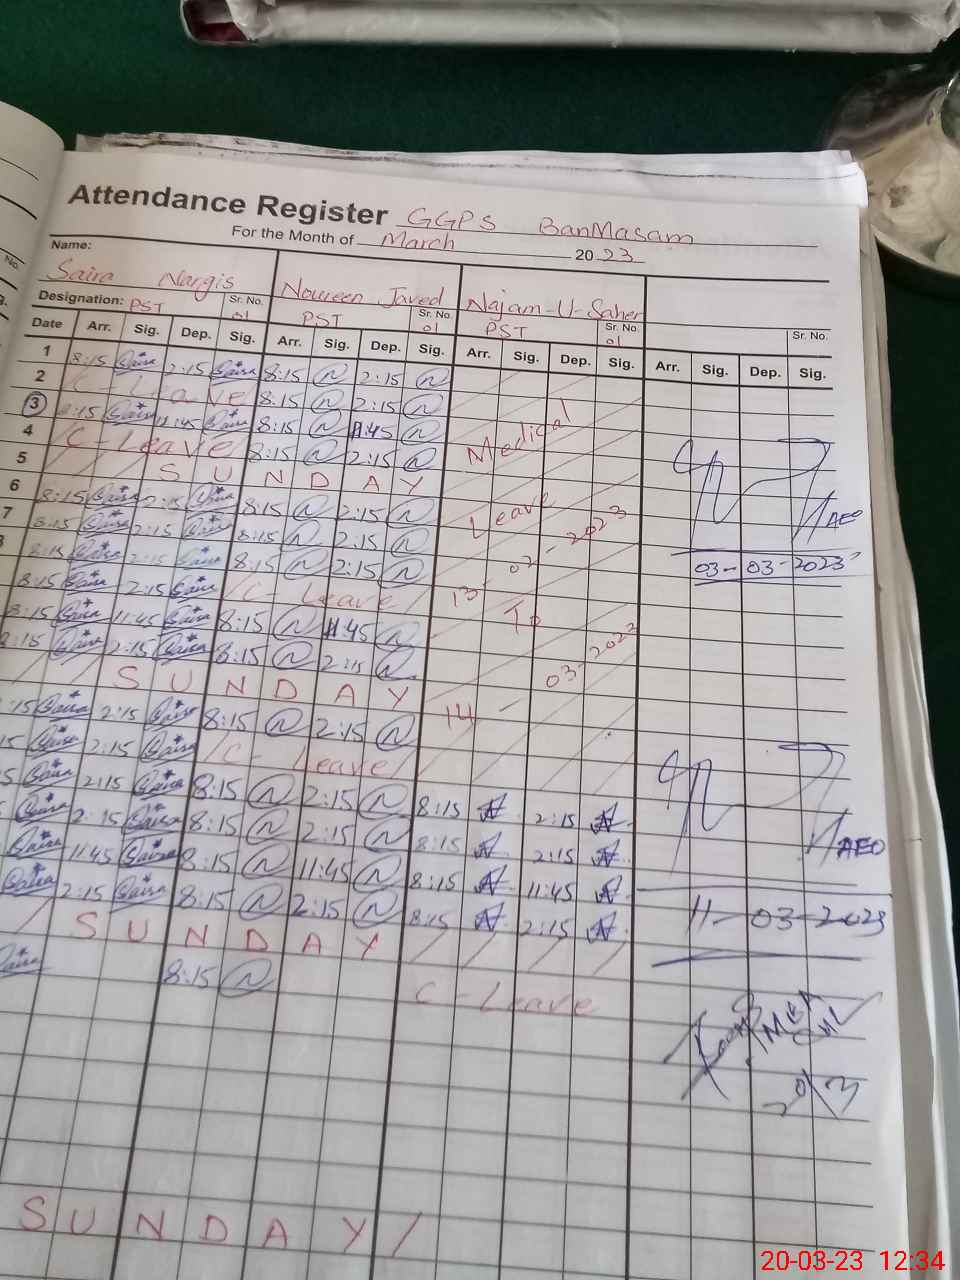 Attendance Register GGPS BanMasam
For the Month of March 2023
Name:
Saira Nargis Noureen Javed Najam-U-Saher
Designation: PST Sr. No. 01 PST Sr. No. 01 PST Sr. No. 01 Sr. No.
Date Arr. Sig. Dep. Sig. Arr. Sig. Dep. Sig. Arr. Sig. Dep. Sig. Arr. Sig. Dep. Sig.
1 8:15 Saira 2:15 Saira 8:15 N 2:15 N
2 C-Leave 8:15 N 2:15 N
3 8:15 Saira 11:45 Saira 8:15 N 11:45 N
4 C-Leave 8:15 N 2:15 N
5 SUNDAY
6 8:15 Saira 2:15 Saira 8:15 N 2:15 N
7 8:15 Saira 2:15 Saira 8:15 N 2:15 N
8:15 Saira 2:15 Saira 8:15 N 2:15 N
8:15 Saira 2:15 Saira C-Leave
8:15 Saira 11:45 Saira 8:15 N 11:45 N
8:15 Saira 2:15 Saira 8:15 N 2:15 N
SUNDAY
Medical
Leave
13-02-2023
To
14-03-2023
AEO
03-03-2023
:15 Saira 2:15 Saira 8:15 N 2:15 N
15 Saira 2:15 Saira C-Leave
5 Saira 2:15 Saira 8:15 N 2:15 N 8:15 N 2:15 N
Saira 2:15 Saira 8:15 N 2:15 N 8:15 N 2:15 N
Saira 11:45 Saira 8:15 N 11:45 N 8:15 N 11:45 N
Saira 2:15 Saira 8:15 N 2:15 N 8:15 N 2:15 N
AEO
11-03-2023
SUNDAY
Saira 8:15 N C-Leave
20/3
SUNDAY
20-03-23 12:34